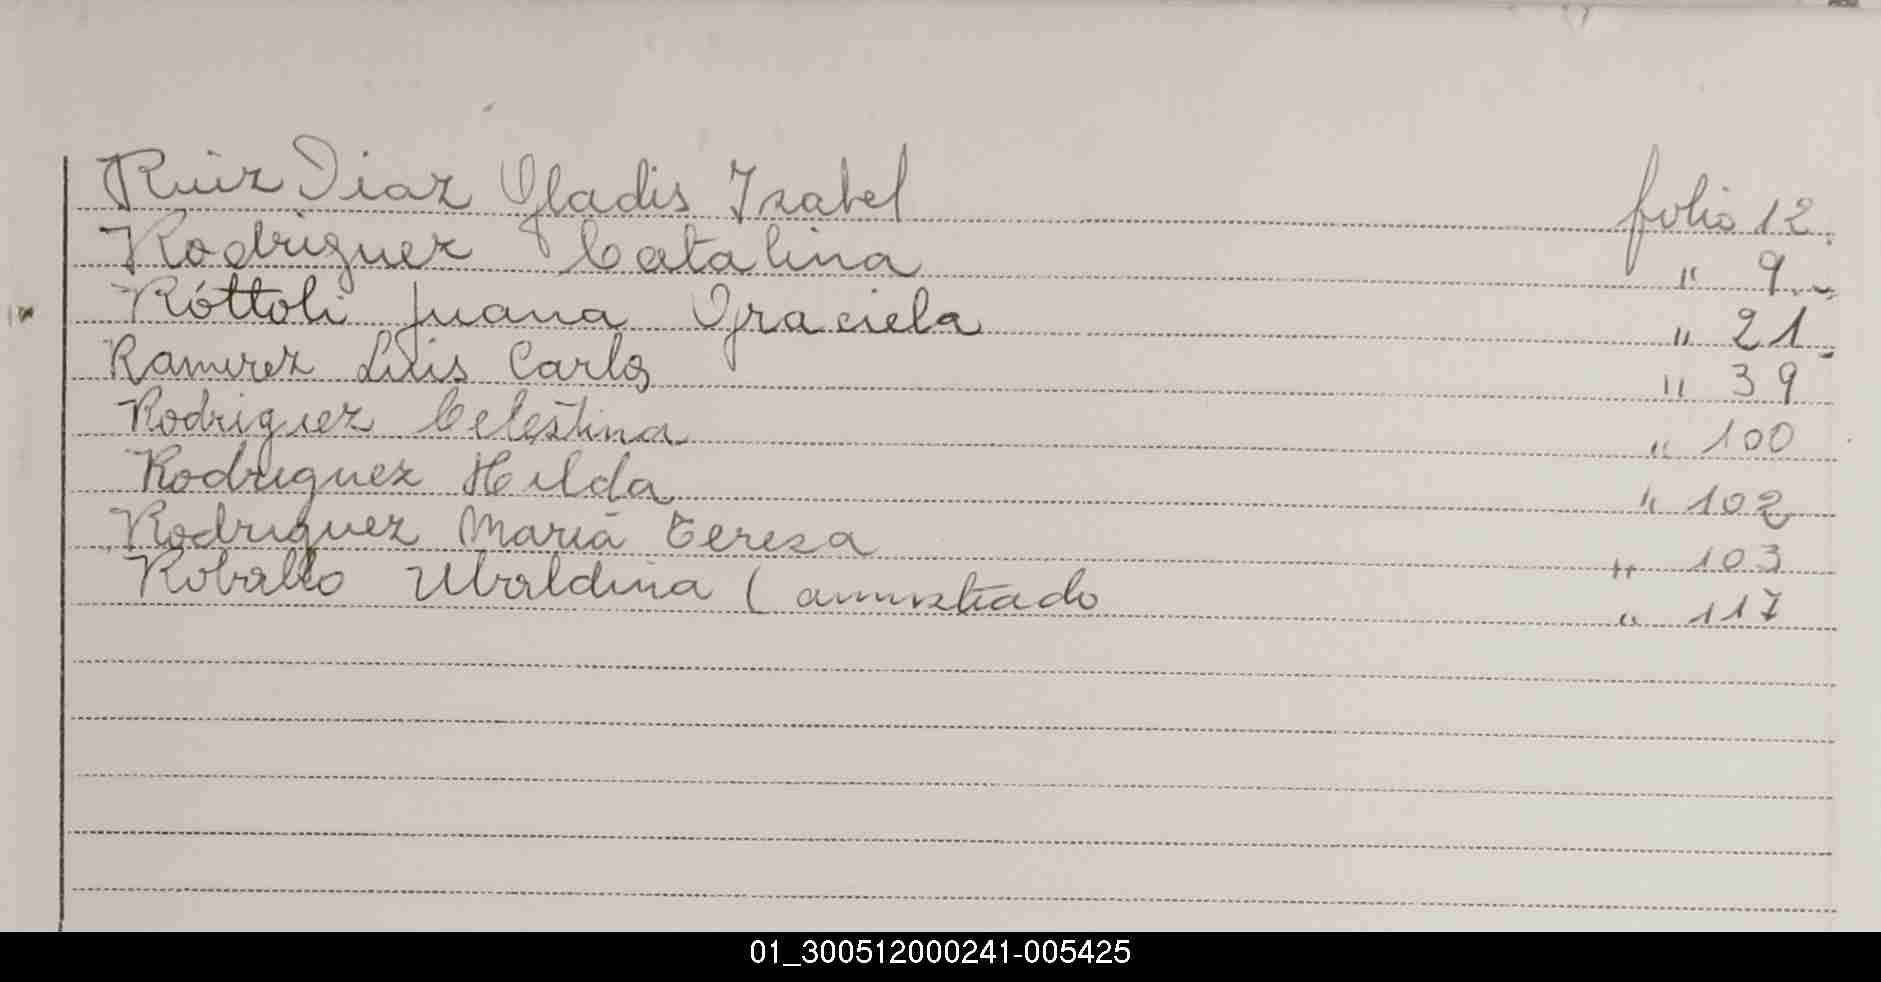 Ruiz Diaz Gladis Izabel folio 12.
Rodriguez Catalina " 9.-
Róttoli Juana Graciela " 21.
Ramirez Luis Carlos " 39
Rodriguez Celestina " 100
Rodriguez Hilda " 102
Rodriguez Maria Tereza " 103
Roballo Ubaldina ( amnistiado " 117
01_300512000241-005425